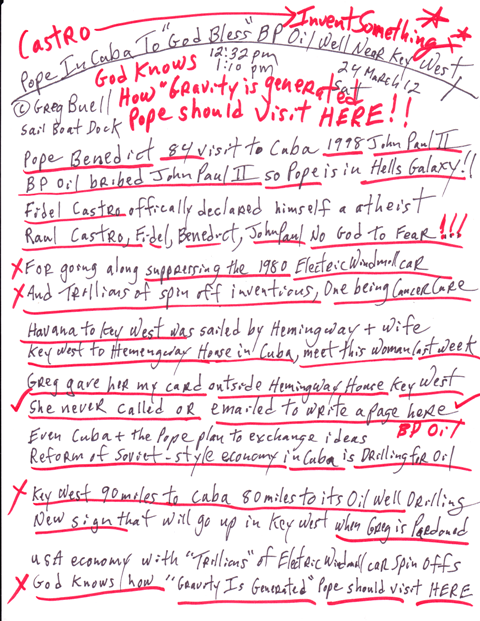 Castro → Invent Something
Pope In Cuba To "God Bless" BP Oil Well Near Key West!
12:32 pm
1:10 pm
24 March '12
Satt
God Knows
How "Gravity is generated
Pope should visit HERE!!
© Greg Buell
Sail Boat Dock
Pope Benedict 84 visit to Cuba 1998 John Paul II
BP Oil bribed John Paul II so Pope is in Hells Galaxy!!
Fidel Castro offically declared himself a atheist
Raul Castro, Fidel, Benedict, John Paul No God to Fear!!!
X For going along suppressing the 1980 Electric Windmill car
X And Trillions of spin off inventions, One being Cancer Cure
Havana to Key West was sailed by Hemingway + wife
Key West to Hemengway House in Cuba, meet this woman last week
Greg gave her my card outside Hemingway House Key West
✓ She never called or emailed to write a page here ✓
BP Oil
Even Cuba + the Pope plan to exchange ideas
Reform of Soviet-style economy in Cuba is Drilling for Oil
X Key West 90 miles to Cuba 80 miles to its Oil Well Drilling
New sign that will go up in Key West when Greg is Pardoned
USA economy with "Trillions" of Electric Windmill car Spin Offs
X God Knows how "Gravity Is Generated" Pope should visit HERE